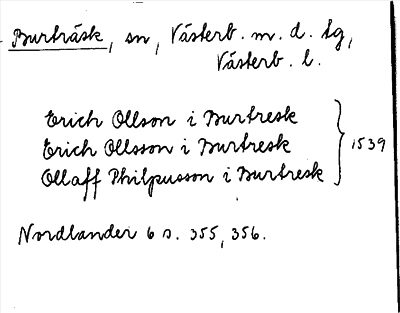 Burträsk, sn, Västerb. m. d. tg,
Västerb. l.
Erich Ollson i Burtresk
Erich Ollsson i Burtresk } 1539
Ollaff Philpusson i Burtresk
Nordlander 6 s. 355, 356.